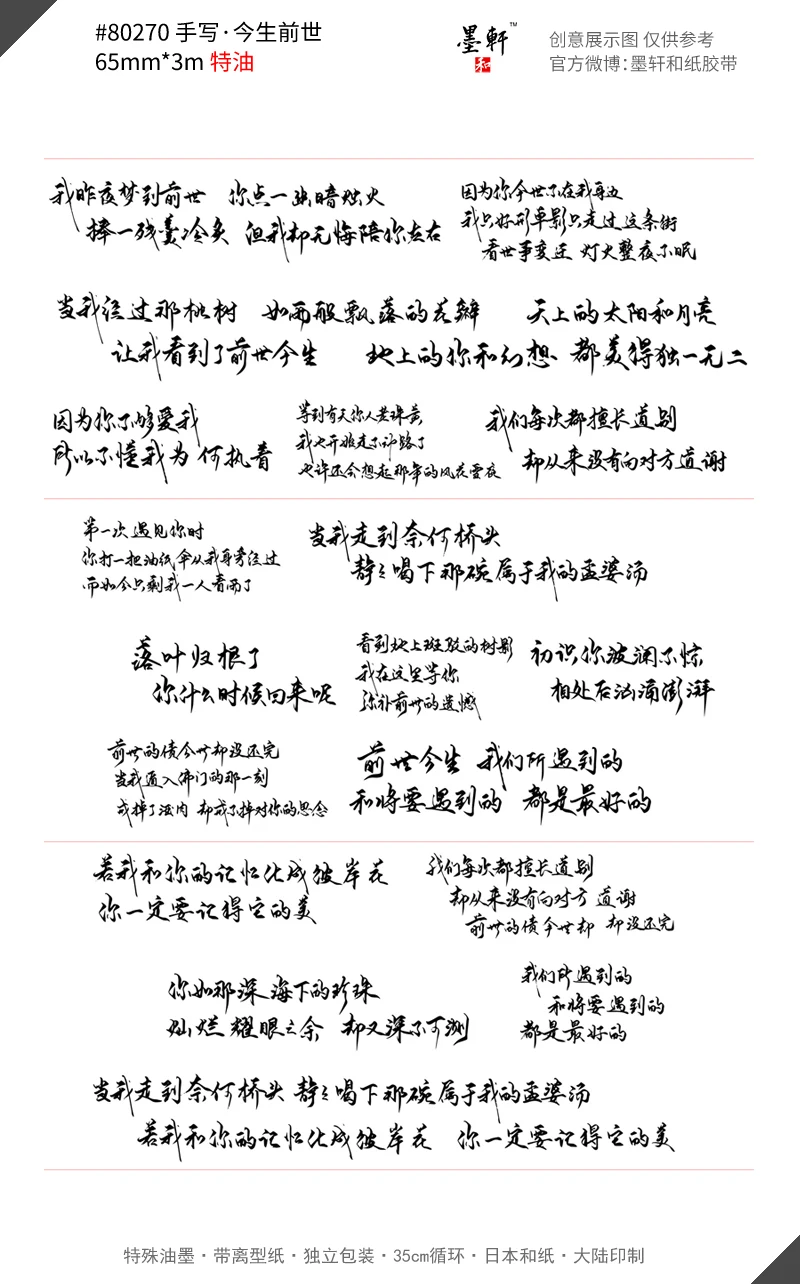 #80270 手写·今生前世
65mm*3m 特油
墨軒™
和
创意展示图 仅供参考
官方微博：墨轩和纸胶带
我昨夜梦到前世 你点一盏暗烛火
捧一残羹冷炙 但我却无悔陪你左右
因为你今世不在我身边
我只好形单影只走过这条街
看世事变迁 灯火整夜不眠
当我经过那桃树 如雨般飘落的花瓣
让我看到了前世今生
天上的太阳和月亮
地上的你和幻想 都美得独一无二
因为你不够爱我
所以不懂我为何执着
等到有天你人老珠黄
我也开始走不动路了
也许还会想起那年的风花雪夜
我们每次都擅长道别
却从来没有向对方道谢
第一次遇见你时
你打一把油纸伞从我身旁经过
而如今只剩我一人看雨了
当我走到奈何桥头
静静喝下那碗属于我的孟婆汤
落叶归根了
你什么时候回来呢
看到地上斑驳的树影
我在这里等你
弥补前世的遗憾
初识你波澜不惊
相处后汹涌澎湃
前世的债今世却没还完
当我遁入佛门的那一刻
戒掉了酒肉 却戒不掉对你的思念
前世今生 我们所遇到的
和将要遇到的 都是最好的
若我和你的记忆化成彼岸花
你一定要记得它的美
我们每次都擅长道别
却从来没有向对方 道谢
前世的债今世却 却没还完
你如那深海下的珍珠
灿烂耀眼之余 却又深不可测
我们所遇到的
和将要遇到的
都是最好的
当我走到奈何桥头 静静喝下那碗属于我的孟婆汤
若我和你的记忆化成彼岸花 你一定要记得它的美
特殊油墨·带离型纸·独立包装·35cm循环·日本和纸·大陆印制